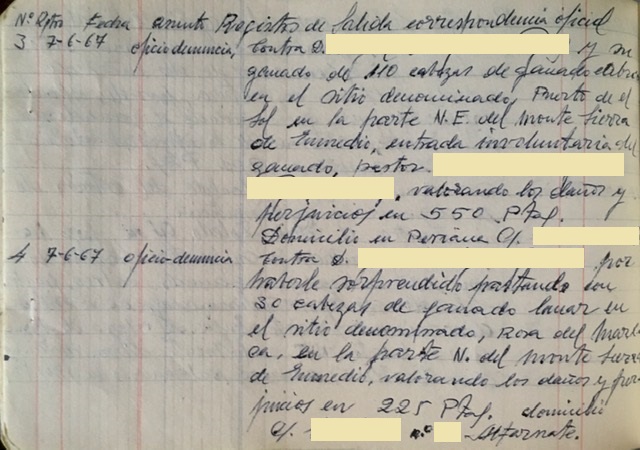 Nº Rgtro Fecha asunto Registos de Salida correspondencia oficial
3 7-6-67 oficio denuncia, contra D. y su
ganado de 110 cabezas de ganado cabrio
en el sitio denominado, Puerto de el
Sol en la parte N.E. del monte Sierra
de Enmedio, entrada involuntaria del
ganado, pastor.
, valorando los daños y
perjuicios en 550 Ptas.
Domicilio en Periana C/.
4 7-6-67 oficio-denuncia contra D. por
haberle sorprendido pastando con
30 cabezas de ganado lanar en
el sitio denominado, Rosa del
en la parte N. del monte Sierra
de Enmedio, valorando los daños y per-
juicios en 225 Ptas. domicilio
C/. n.º - Alfarnate.